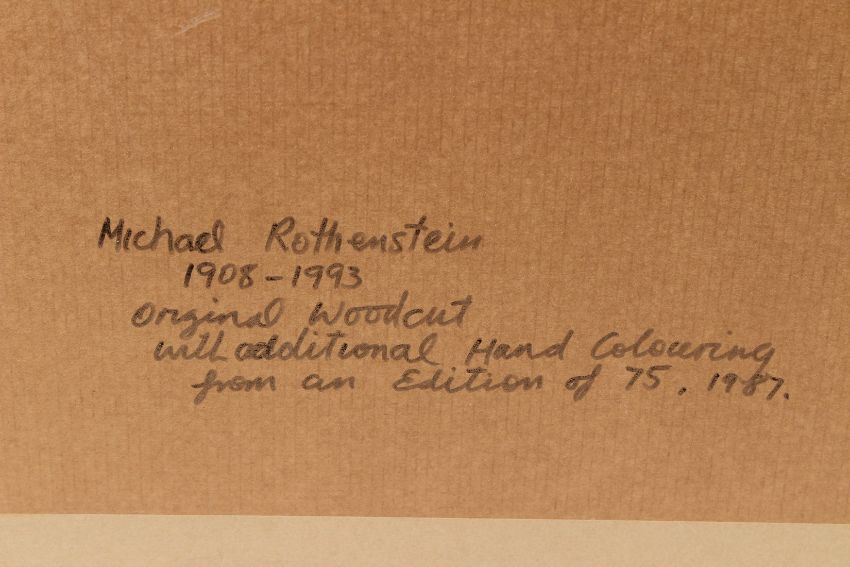 Michael Rothenstein
1908-1993
Original Woodcut
with additional Hand Colouring
from an Edition of 75, 1987.